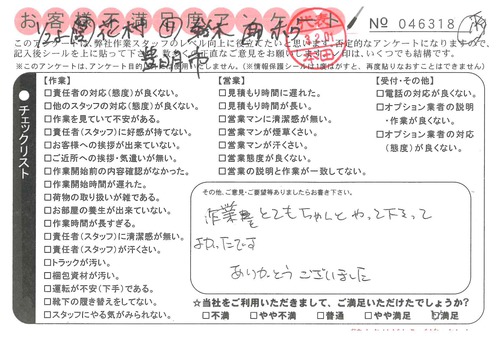 お客様満足度アンケート
No 046318
このアンケートは、弊社作業スタッフのレベル向上に役立てたいと思います。否定的なアンケートになりますので、
記入後シールを上に貼って下さい。数多くの正直なご意見をお願いします。
※このアンケートは、アンケート目的
(情報保護シールは1度はがすと、再度貼りなおすことはできません)
豊明市
チェックリスト
【作業】
□責任者の対応(態度)が良くない。
□他のスタッフの対応(態度)が良くない。
□作業を見ていて不安がある。
□責任者(スタッフ)に好感が持てない。
□お客様への挨拶が出来ていない。
□ご近所への挨拶・気遣いが無い。
□作業開始前の内容確認がなかった。
□作業開始時間が遅れた。
□荷物の取り扱いが雑である。
□お部屋の養生が出来ていない。
□作業時間が長すぎる。
□責任者(スタッフ)に清潔感が無い。
□責任者(スタッフ)が汗くさい。
□トラックが汚い。
□梱包資材が汚い。
□運転が不安(下手)である。
□靴下の履き替えをしてない。
□スタッフにやる気がみられない。
【営業】
□見積もり時間に遅れた。
□見積もり時間が長い。
□営業マンに清潔感が無い。
□営業マンが煙草くさい。
□営業マンが汗くさい。
□営業態度が良くない。
□営業の説明と作業が一致してない。
【受付・その他】
□電話の対応が良くない。
□オプション業者の説明
・作業が良くない。
□オプション業者の対応
(態度)が良くない。
その他、ご意見・ご要望等ありましたらお書き下さい。
作業もとてもちゃんとやって下さって
よかったです
ありがとうございました
☆当社をご利用いただきまして、ご満足いただけたでしょうか?
□不満 □やや不満 □普通 □やや満足 ☑満足